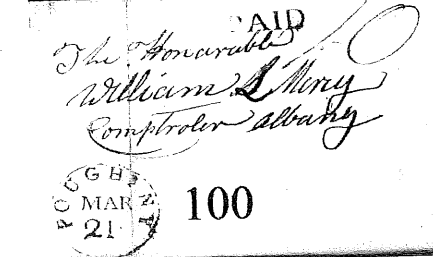 PAID
The Honarable
William L Mercy
Comptroler albany
POUGHENP
MAR
21
100